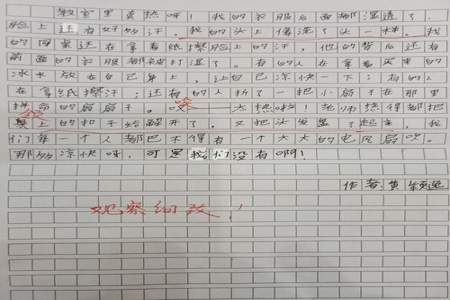 教室里真热呀!我的衣服后面都湿透了,
脸上还有好多汗,我的头上像洗了头一样。我
的同桌还在拿着纸擦脸上的汗,他的背后还有
前面的衣服都湿了。有的人在拿着买来的
冰水放在自己身上,让自己凉快一下;有的人
在拿纸擦汗;还有的人折了一把小扇子在那里
拼命的扇扇子。太热啦!老师热得都把
头上的扣子给解开了,又把头发盘了起来,我
们每一个人都巴不得有一个大大的电风扇吹。
那多凉快呀,可是我们没有啊!
作者:黄
观察细致!